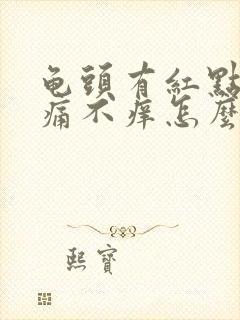 龟頭有紅點
痛不痒怎麼
熙寶